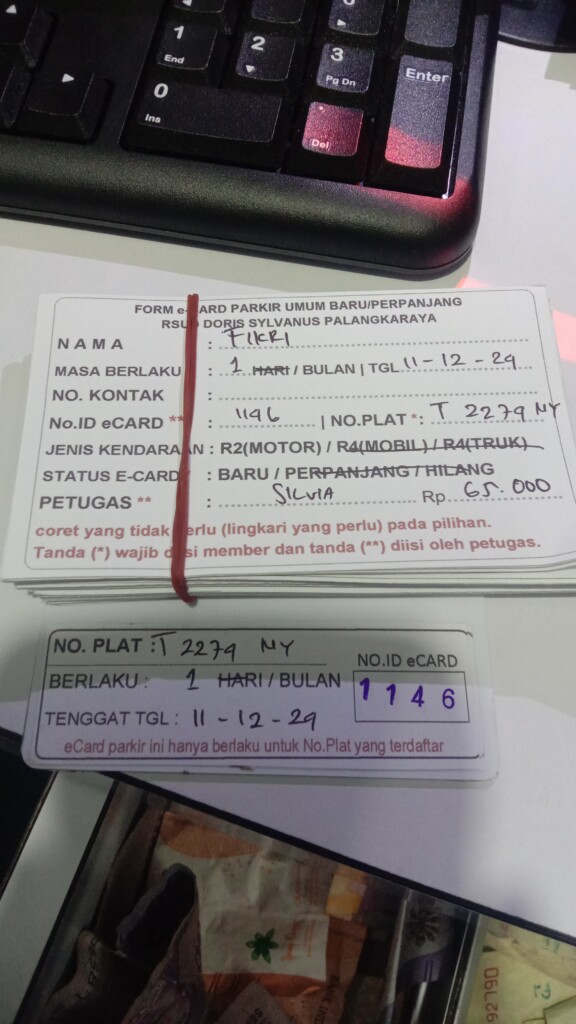 1
End
2
3
Pg Dn
Enter
0
Ins
Del
FORM e-CARD PARKIR UMUM BARU/PERPANJANG
RSUD DORIS SYLVANUS PALANGKARAYA
NAMA : FIKRI
MASA BERLAKU : 1 HARI / BULAN | TGL. 11-12-24
NO. KONTAK :
No.ID eCARD ** : 1146 | NO.PLAT *: T 2279 NY
JENIS KENDARAAN : R2(MOTOR) / R4(MOBIL) / R4(TRUK)
STATUS E-CARD : BARU / PERPANJANG / HILANG
PETUGAS ** : SILVIA Rp. 65.000
coret yang tidak perlu (lingkari yang perlu) pada pilihan.
Tanda (*) wajib diisi member dan tanda (**) diisi oleh petugas.
NO. PLAT : T 2279 NY
NO.ID eCARD
BERLAKU : 1 HARI / BULAN
1146
TENGGAT TGL : 11-12-24
eCard parkir ini hanya berlaku untuk No.Plat yang terdaftar